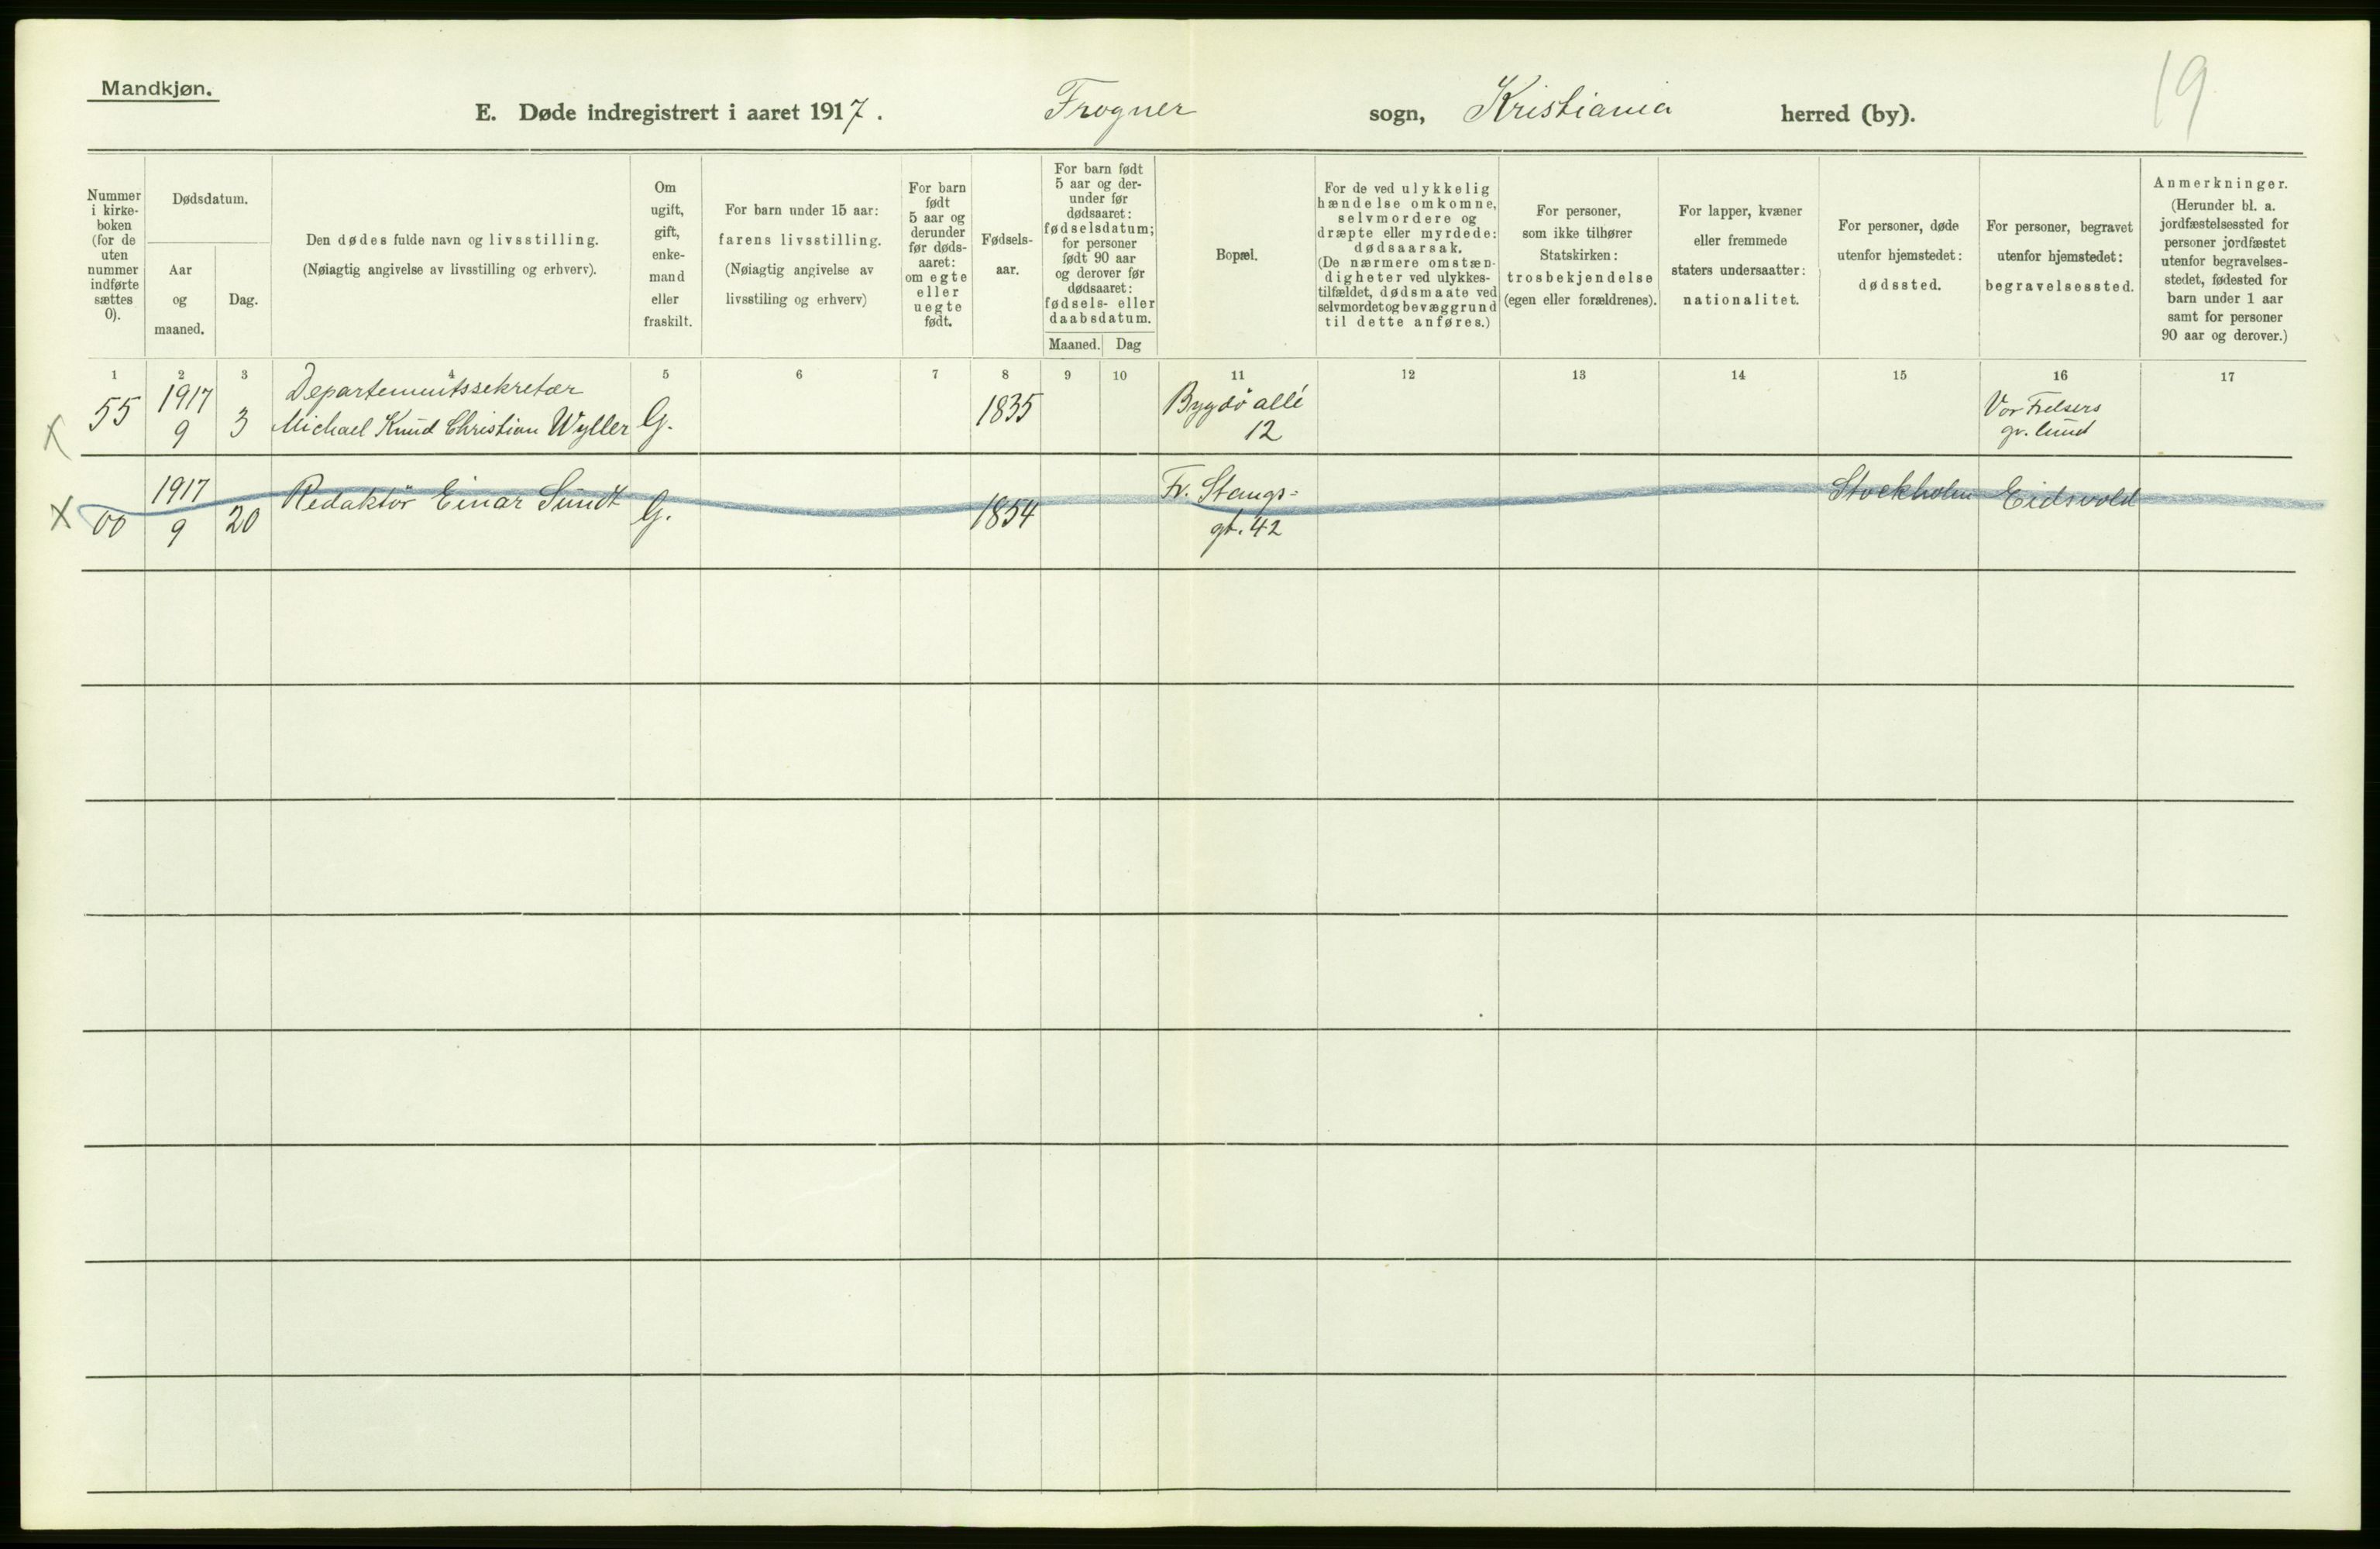 Mandkjøn.
E. Døde indregistrert i aaret 1917. Frogner sogn, Kristiania herred (by).
19
Nummer i kirke-boken (for de uten nummer indførte sættes 0).
Dødsdatum.
Aar og maaned.
Dag.
Den dødes fulde navn og livsstilling.
(Nøiagtig angivelse av livsstilling og erhverv).
Om ugift, gift, enke-mand eller fraskilt.
For barn under 15 aar:
farens livsstilling.
(Nøiagtig angivelse av
livsstiling og erhverv)
For barn født 5 aar og derunder før døds-aaret: om egte eller uegte født.
Fødsels-aar.
For barn født 5 aar og der-under før dødsaaret: fødselsdatum; for personer født 90 aar og derover før dødsaaret: fødsels- eller daabsdatum.
Maaned. Dag
Bopæl.
For de ved ulykkelig hændelse omkomne, selvmordere og dræpte eller myrdede: dødsaarsak. (De nærmere omstæn-digheter ved ulykkes-tilfældet, dødsmaate ved selvmordet og bevæggrund til dette anføres.)
For personer, som ikke tilhører Statskirken: trosbekjendelse (egen eller forældrenes).
For lapper, kvæner eller fremmede staters undersaatter: nationalitet.
For personer, døde utenfor hjemstedet: dødssted.
For personer, begravet utenfor hjemstedet: begravelsessted.
Anmerkninger. (Herunder bl. a. jordfæstelsessted for personer jordfæstet utenfor begravelses-stedet, fødested for barn under 1 aar samt for personer 90 aar og derover.)
1 2 3 4 5 6 7 8 9 10 11 12 13 14 15 16 17
X 55 1917 9 3 Departementssekretær
Michael Knud Christian Wyller G. 1835 Bygdø allé
12 Vor Frelsers
gr. lund
X 00 1917 9 20 Redaktør Einar Sundt G. 1854 Fr. Stangs=
gt. 42 Stockholm Eidsvold